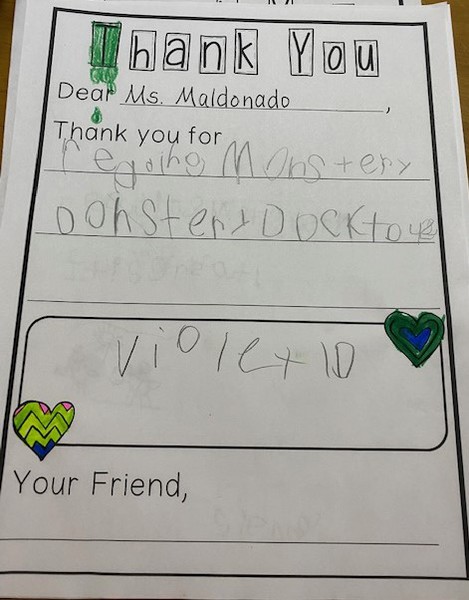 Thank You
Dear Ms. Maldonado,
Thank you for
regding Monstery
Donstery Docktour
Violet D
Your Friend,